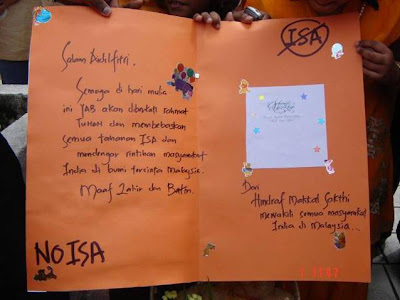 Salam Aidilfitri.
Semoga di hari mulia
ini YAB akan diberkati rahmat
Tuhan dan membebaskan
semua tahanan ISA dan
mendengar rintihan masyarakat
India di bumi tercinta Malaysia.
Maaf Zahir dan Batin.
NO ISA
ISA
Dari
Hindraf Makkal Sakthi
mewakili semua masyarakat
India di Malaysia...